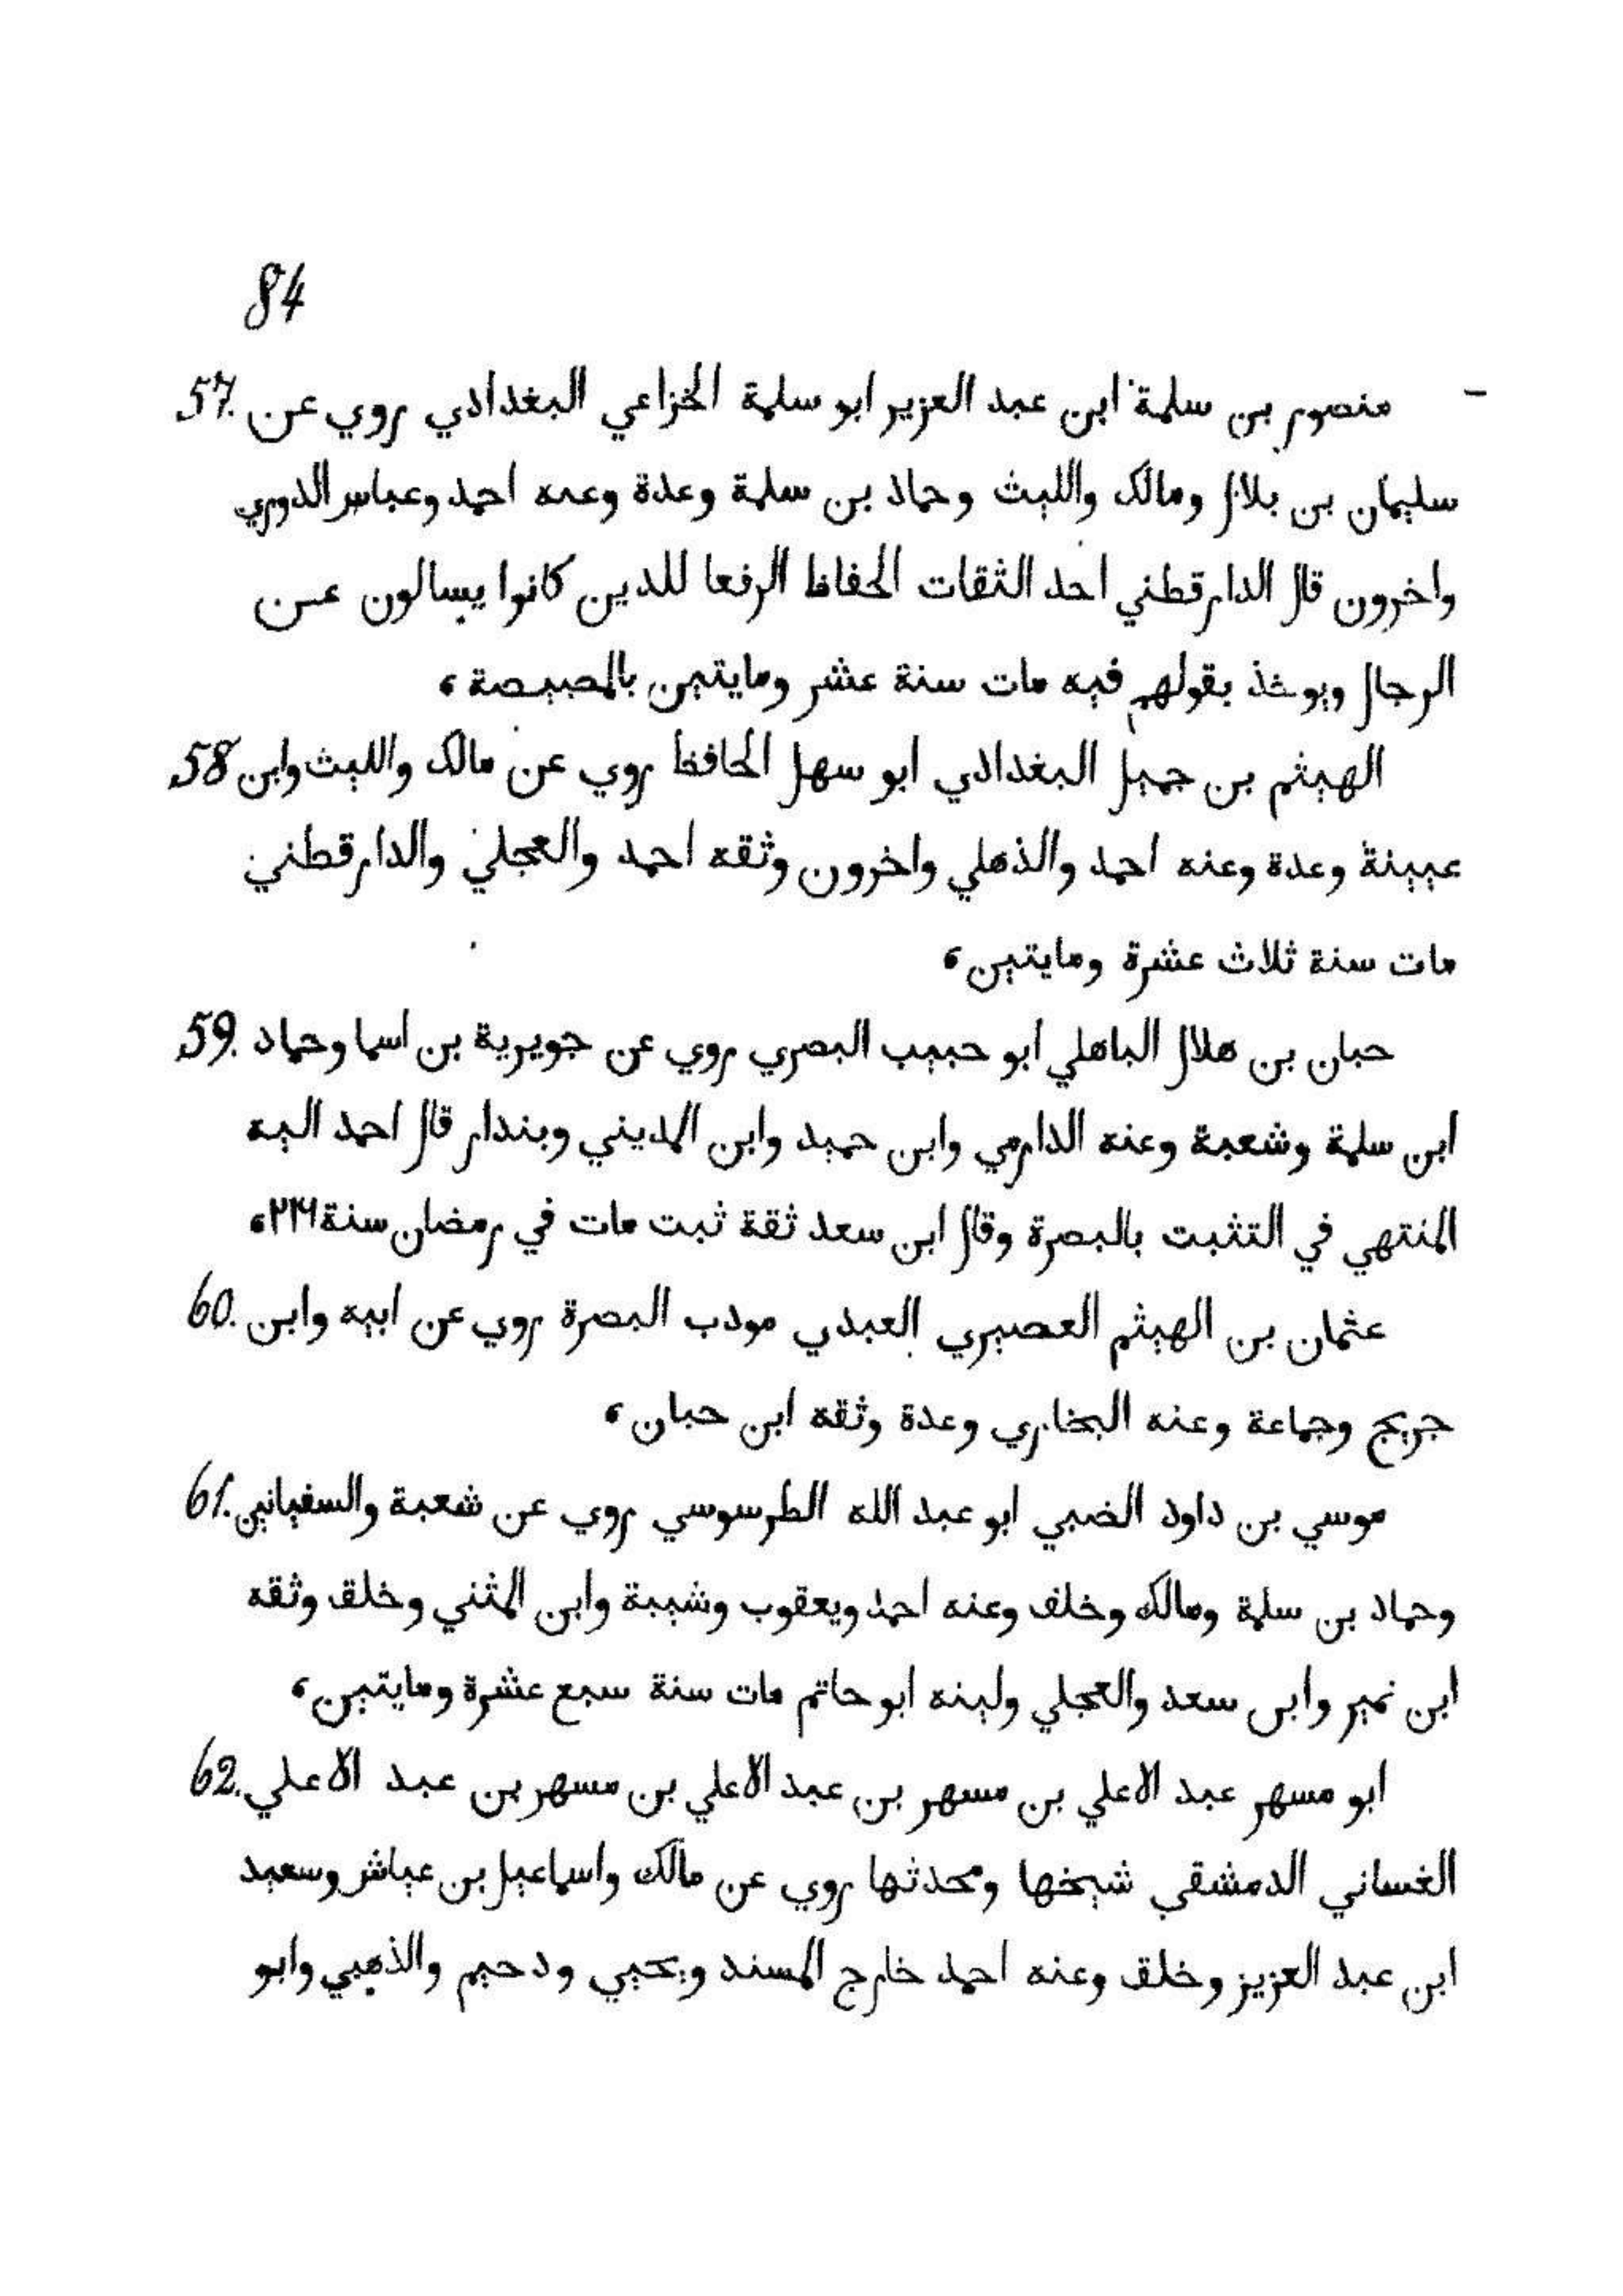 84
منصور بن سلمة ابن عبد العزير ابو سلمة الخزاعي البغدادي روي عن .57
سليمان بن بلال ومالك والليث وحماد بن سلمة وعدة وعنه احمد وعباس الدوري
واخرون قال الدارقطني احد الثقات الحفاظ الرفعا للدين كانوا يسالون عن
الرجال ويوخذ بقولهم فيه مات سنة عشر ومايتين بالمصيصة،
الهيثم بن جميل البغدادي ابو سهل الحافظ روي عن مالك والليث وابن 58.
عيينة وعدة وعنه احمد والذهلي واخرون وثقه احمد والعجلي والدارقطني
مات سنة ثلاث عشرة ومايتين،
حبان بن هلال الباهلي ابو حبيب البصري روي عن جويرية بن اسما وحماد .59
ابن سلمة وشعبة وعنه الدارمي وابن حميد وابن المديني وبندار قال احمد اليه
المنتهي في التثبت بالبصرة وقال ابن سعد ثقة ثبت مات في رمضان سنة ٢١٦،
عثمان بن الهيثم العصيري العبدي مودب البصرة روي عن ابيه وابن .60
جريج وجماعة وعنه البخاري وعدة وثقه ابن حبان،
موسي بن داود الضبي ابو عبد الله الطرسوسي روي عن شعبة والسفيانين .61
وحماد بن سلمة ومالك وخلف وعنه احمد ويعقوب وشيبة وابن المثني وخلق وثقه
ابن نمير وابن سعد والعجلي ولينه ابو حاتم مات سنة سبع عشرة ومايتين،
ابو مسهر عبد الاعلي بن مسهر بن عبد الاعلي بن مسهر بن عبد الاعلي .62
الغساني الدمشقي شيخها ومحدثها روي عن مالك واسماعيل بن عياش وسعيد
ابن عبد العزيز وخلق وعنه احمد خارج المسند ويحيي ودحيم والذهبي وابو